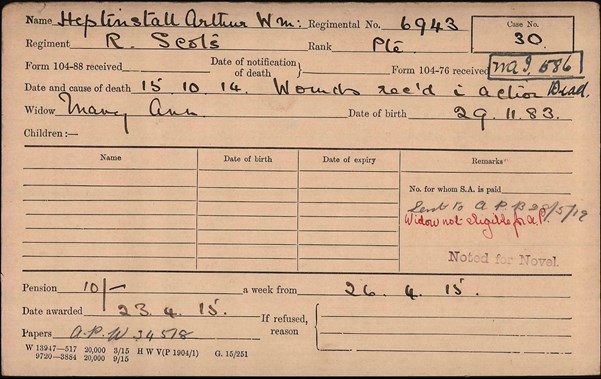 Name Heptinstall Arthur Wm: Regimental No. 6943 Case No. 30.
Regiment R. Scots Rank Pte
Form 104-88 received Date of notification of death Form 104-76 received
Date and cause of death 15.10.14. Wounds rec'd i action Dead.
Widow Mary Ann Date of birth 29.11.83.
Children:—
Name Date of birth Date of expiry Remarks
No. for whom S.A. is paid
Sent to A.P.
Widow not eligible for A.P.
Noted for Novel.
Pension 10/- a week from 26.4.15.
Date awarded 23.4.15. If refused, reason
Papers A.P.W 34518
W 13947—517 20,000 3/15 H W V(P 1904/1) G. 15/251
9720—3884 20,000 9/15